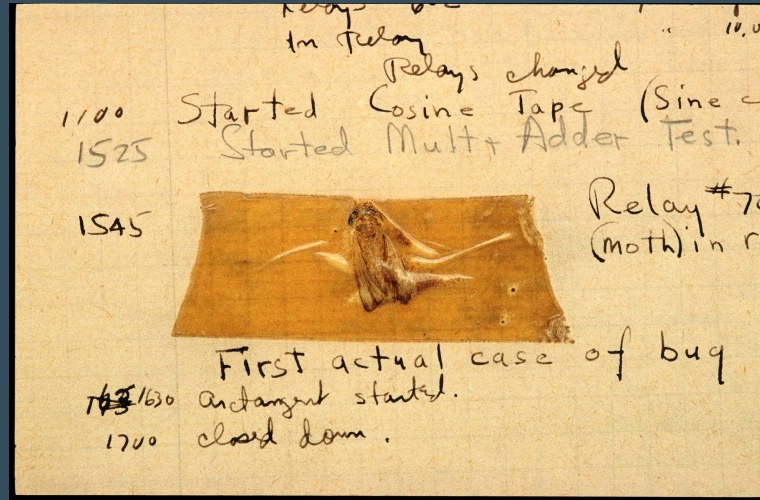 Relays
in Relay
Relays changed
1100 Started Cosine Tape (Sine
1525 Started Mult+ Adder Test.
1545 Relay #70
(moth) in
First actual case of bug
1630 arctangent started.
1700 closed down.